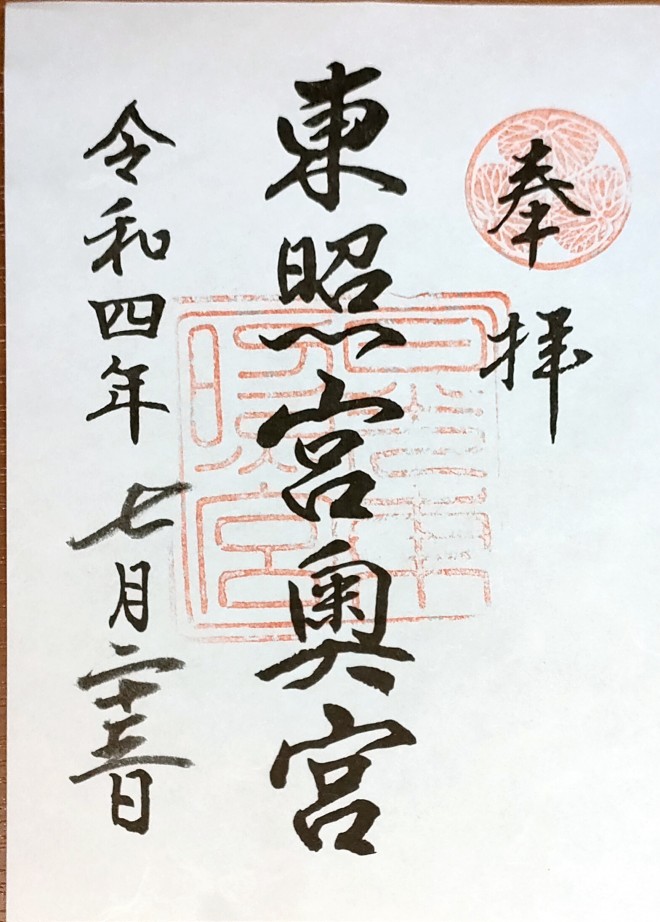 奉拝
東照宮奥宮
令和四年七月二十三日